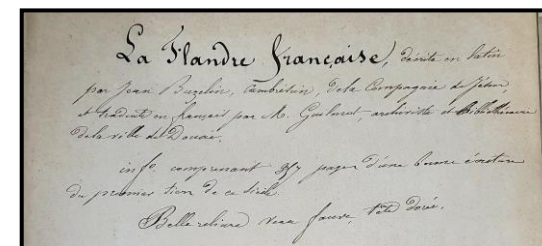 La Flandre française, décrite en latin
par Jean Buzelin, Cambrésien, de la Compagnie de Jésus,
et traduite en français par M. Guilmot, archiviste et Bibliothécaire
de la ville de Douai.
inf° comprenant pages d'une bonne écriture
du premier tiers de ce siècle.
Belle reliure veau fauve, tête dorée.